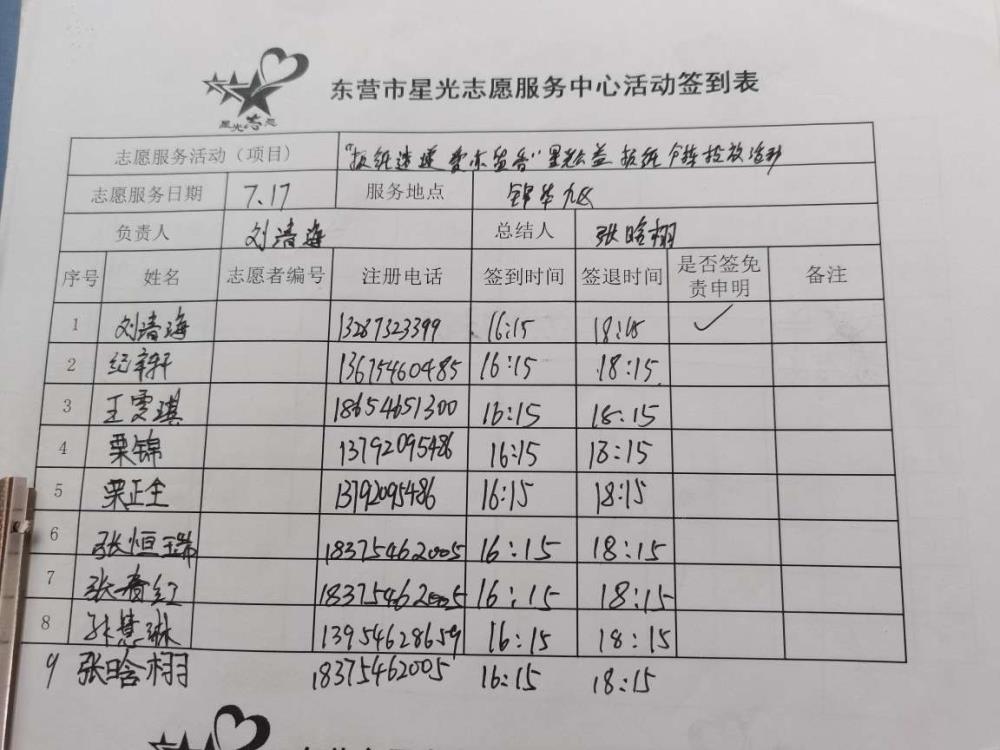 星光志愿
东营市星光志愿服务中心活动签到表
志愿服务活动（项目） "报纸速递 星光公益 报纸
志愿服务日期 7.17 服务地点 锦华九区
负责人 刘清海 总结人 张晗栩
序号 姓名 志愿者编号 注册电话 签到时间 签退时间 是否签免责申明 备注
1 刘清海 13287323399 16:15 18:15 ✓
2 纪宇轩 13675460485 16:15 18:15
3 王雯琪 18654651300 16:15 18:15
4 栗锦 13792095486 16:15 18:15
5 栗正全 13792095486 16:15 18:15
6 张恒瑞 18375462005 16:15 18:15
7 张春红 18375462005 16:15 18:15
8 张慧琳 13954628659 16:15 18:15
9 张晗栩 18375462005 16:15 18:15